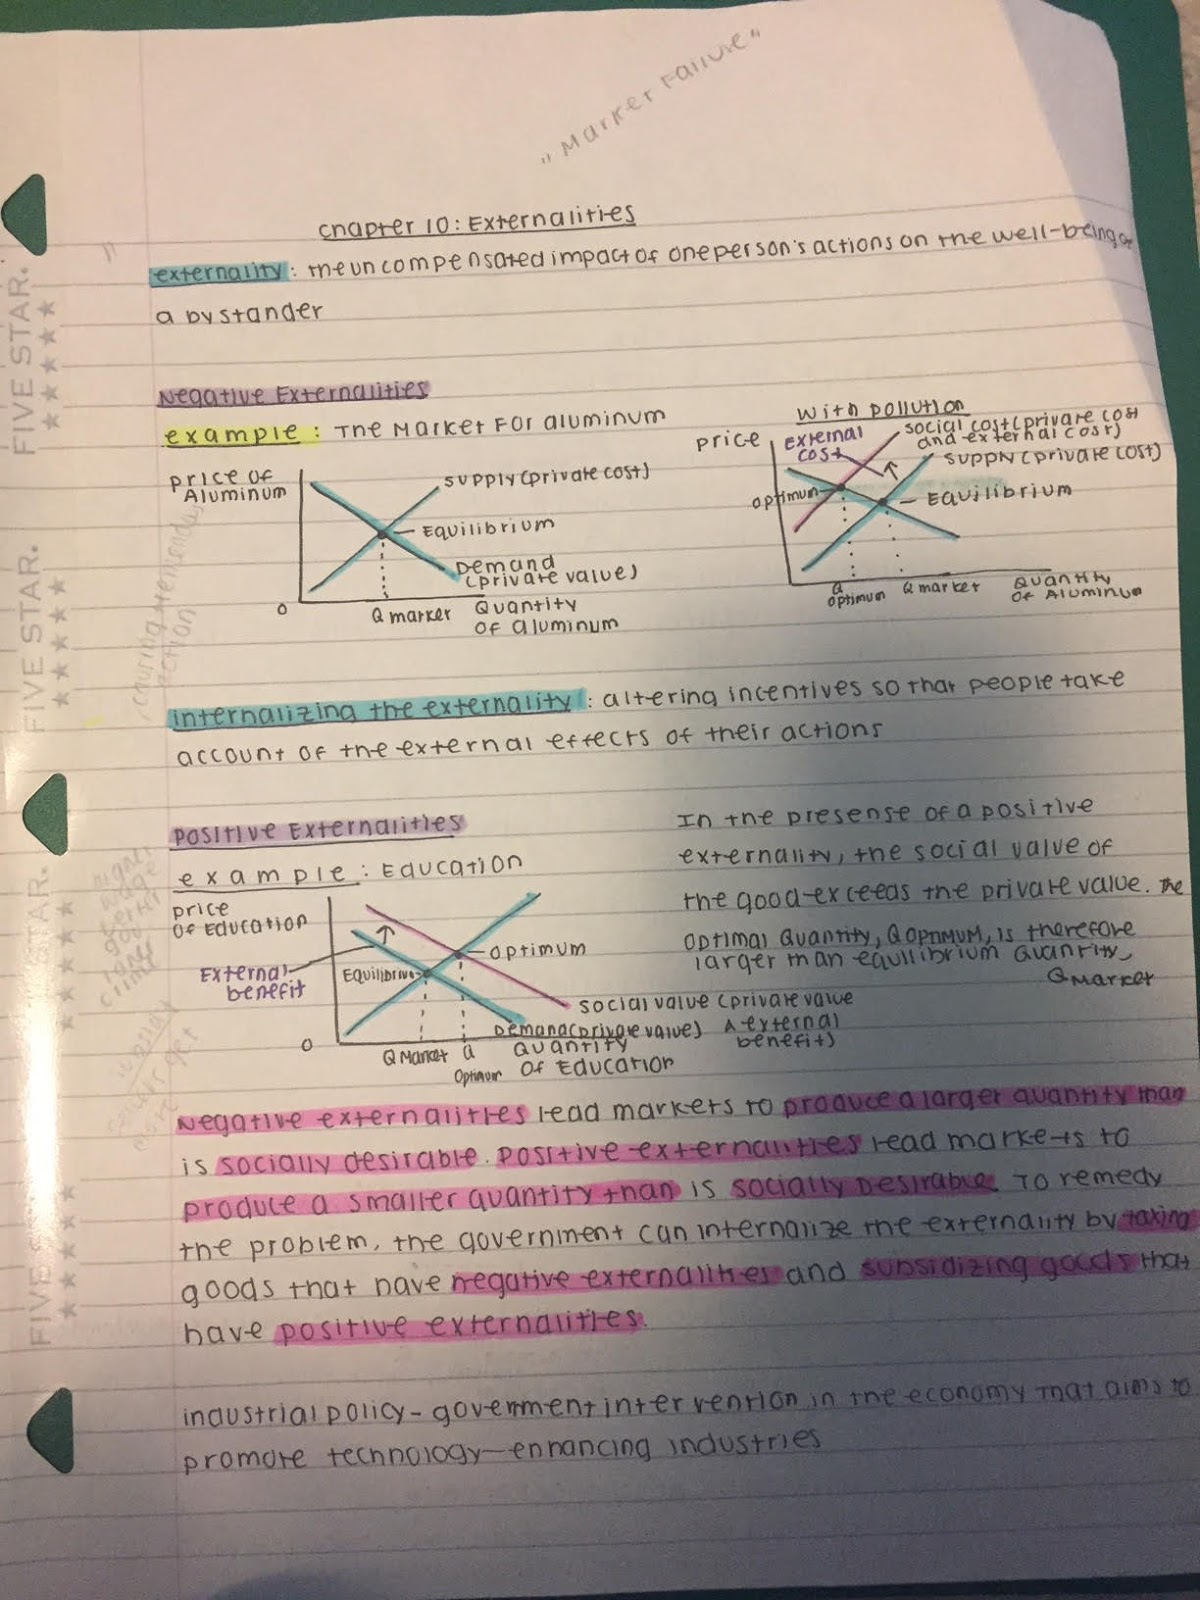 "Market Failure"
chapter 10: Externalities
externality: the uncompensated impact of one person's actions on the well-being of
a bystander
Negative Externalities
example: The Market For aluminum
Price of
Aluminum
supply (private cost)
Equilibrium
Demand
(private value)
0
Q market
Quantity
of aluminum
With pollution
price
External
cost
social cost (private cost
and external cost)
supply (private cost)
optimum
Equilibrium
Q
optimum
Q market
Quantity
of Aluminum
internalizing the externality: altering incentives so that people take
account of the external effects of their actions
Positive Externalities
example: Education
price
of Education
External
benefit
Equilibrium
optimum
social value (private value
external
benefit)
Demand (private value)
0
Q Market
Q
Optimum
Quantity
of Education
In the presense of a positive
externality, the social value of
the good exceeds the private value. The
optimal quantity, Q optimum, is therefore
larger than equilibrium quantity,
Q Market
Negative externalities lead markets to produce a larger quantity than
is socially desirable. Positive externalities lead markets to
produce a smaller quantity than is socially desirable. To remedy
the problem, the government can internalize the externality by taxing
goods that have negative externalities and subsidizing goods that
have positive externalities.
industrial policy - government intervention in the economy that aims to
promote technology-enhancing industries
FIVE STAR.
FIVE STAR.
STAR.
FIVE